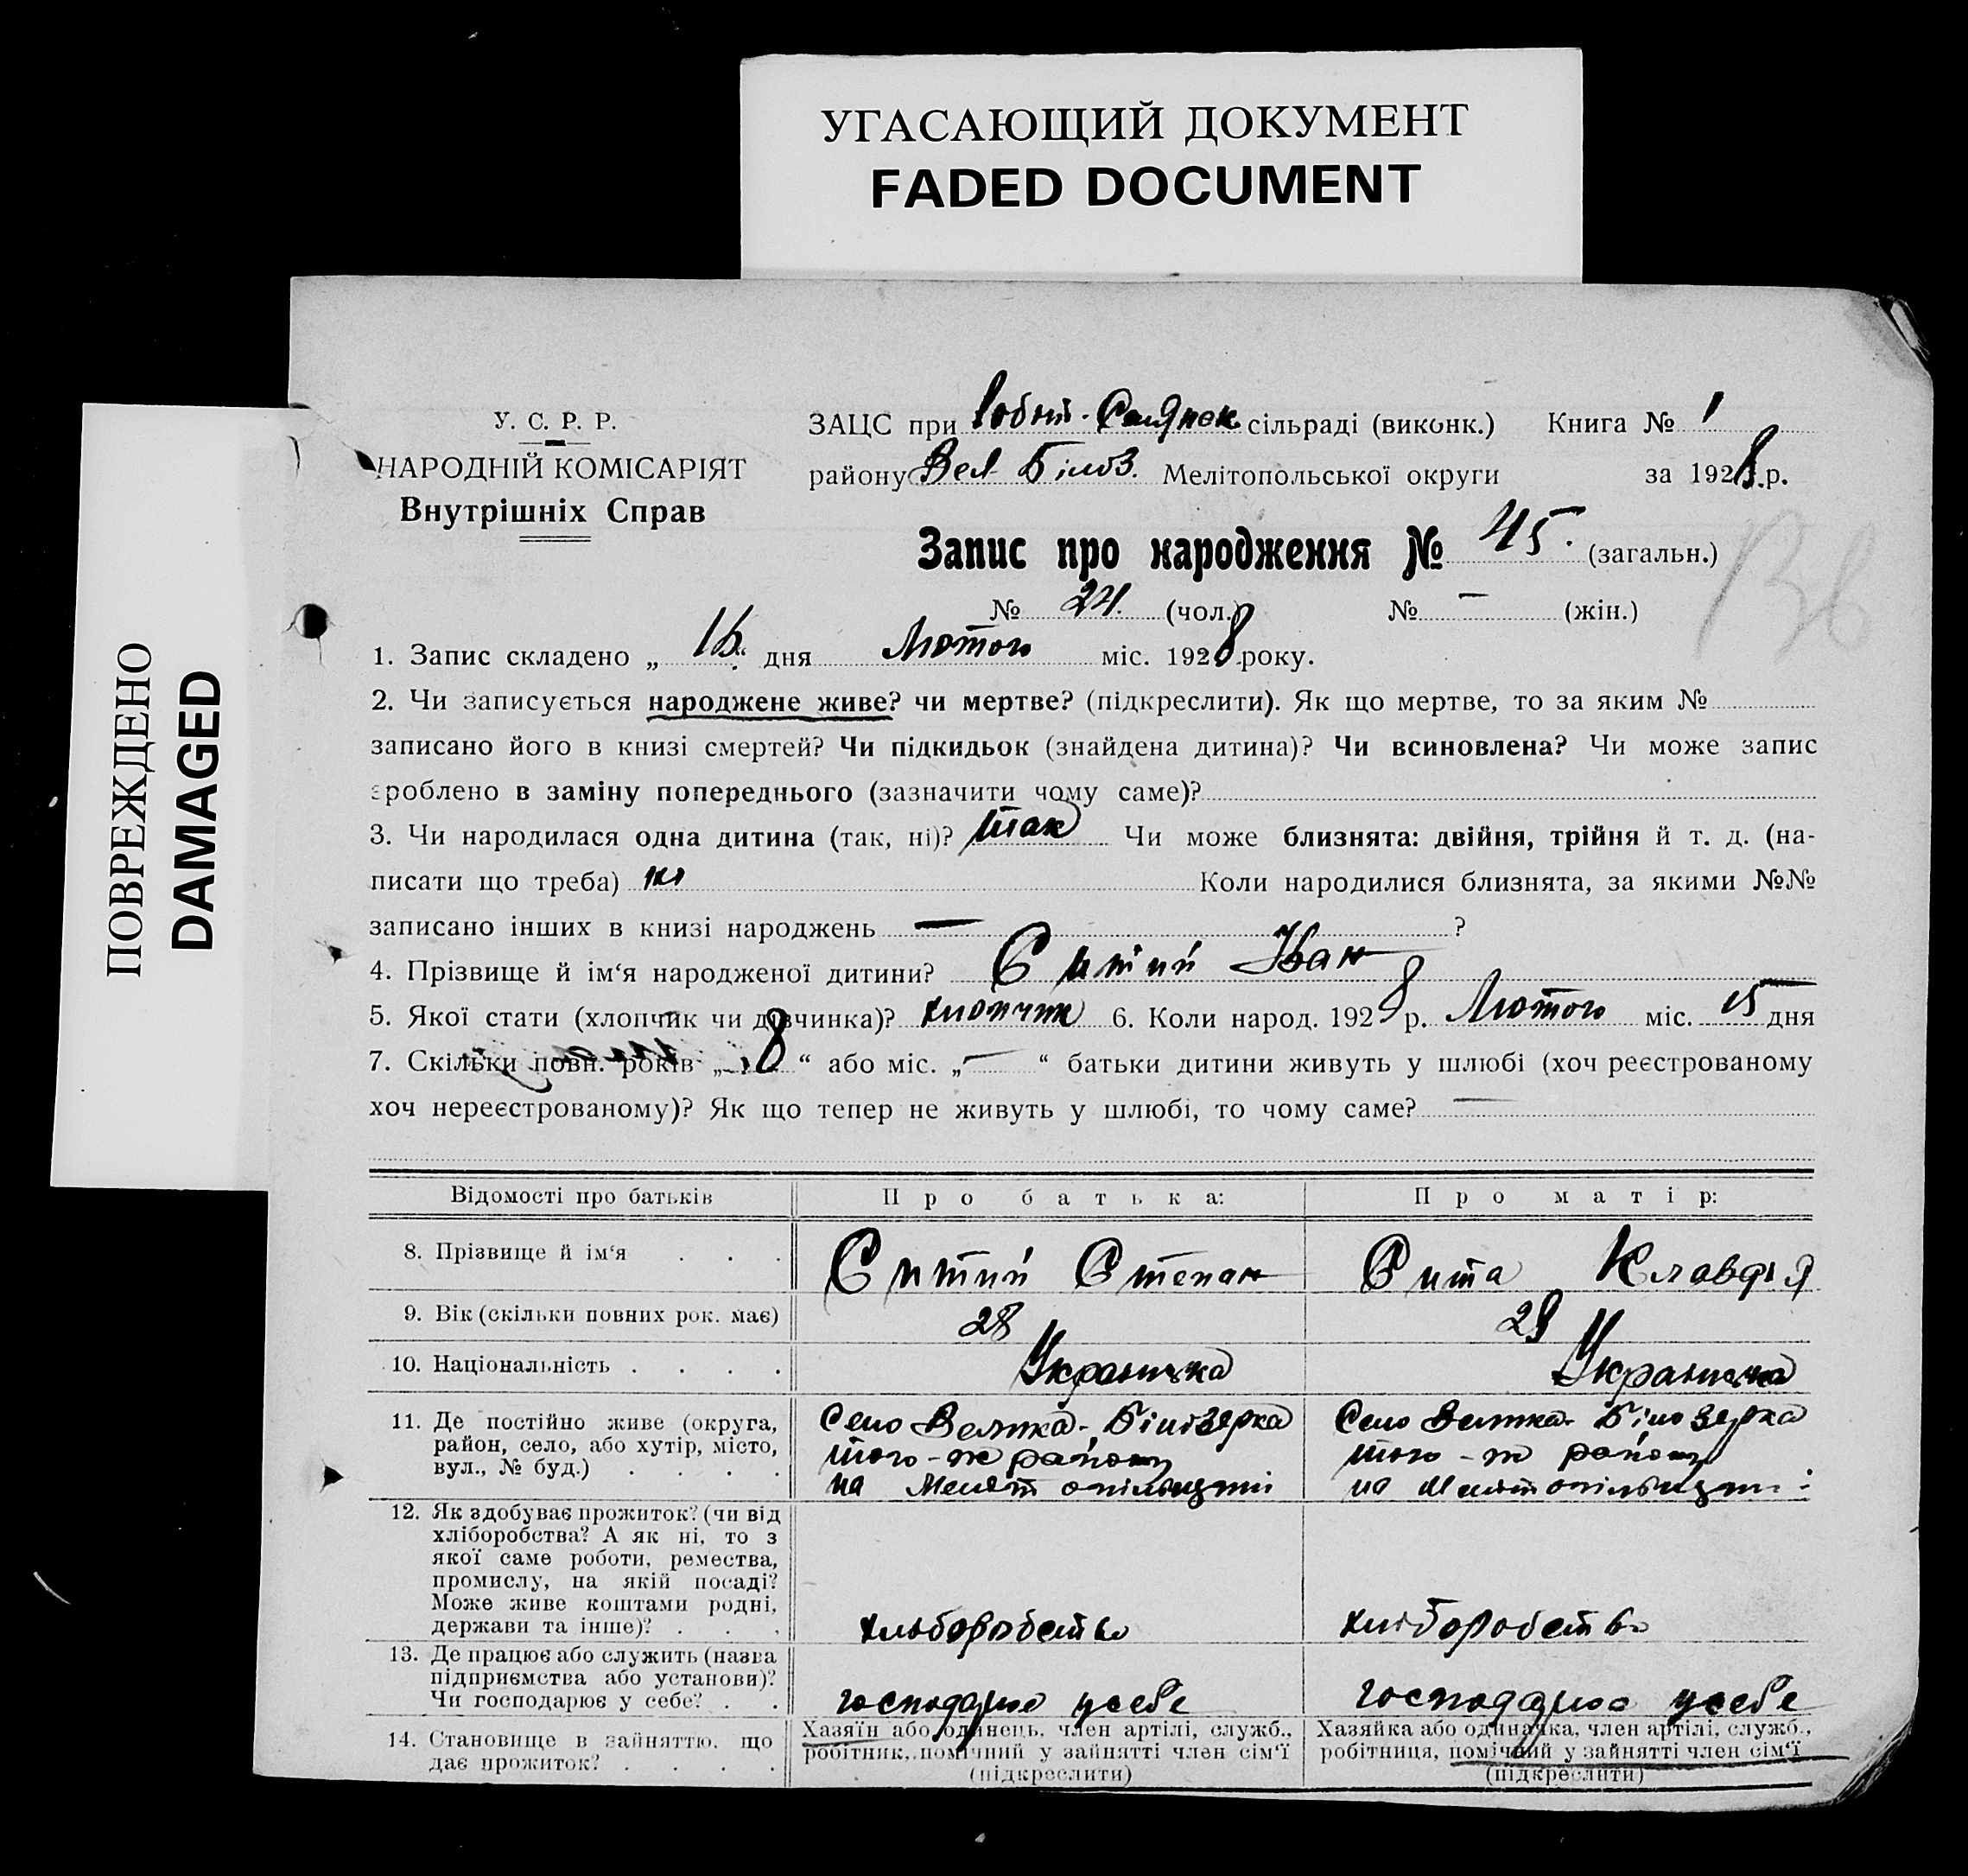 УГАСАЮЩИЙ ДОКУМЕНТ
FADED DOCUMENT
ПОВРЕЖДЕНО
DAMAGED
У. С. Р. Р.
НАРОДНІЙ КОМІСАРІЯТ
Внутрішніх Справ
ЗАЦС при сільраді (виконк.) Книга № 1
району Вел Білоз. Мелітопольської округи за 1928 р.
Запис про народження № 45. (загальн.)
№ 24. (чол.) № — (жін.)
136
1. Запис складено „ 16 “ дня Лютого міс. 1928 року.
2. Чи записується народжене живе? чи мертве? (підкреслити). Як що мертве, то за яким №
записано його в книзі смертей? Чи підкидьок (знайдена дитина)? Чи всиновлена? Чи може запис
зроблено в заміну попереднього (зазначити чому саме)?
3. Чи народилася одна дитина (так, ні)? так Чи може близнята: двійня, трійня й т. д. (на-
писати що треба) Коли народилися близнята, за якими №№
записано інших в книзі народжень — ?
4. Прізвище й ім‘я народженої дитини? Ситий Іван
5. Якої стати (хлопчик чи дівчинка)? хлопчик 6. Коли народ. 1928 р. Лютого міс. 15 дня
7. Скільки повн. років „ 8 “ або міс. „ — “ батьки дитини живуть у шлюбі (хоч реєстрованому
хоч нереєстрованому)? Як що тепер не живуть у шлюбі, то чому саме? —
Відомості про батьків Про батька: Про матір:
8. Прізвище й ім‘я . . . Ситий Степан Сита Клавдія
9. Вік (скільки повних рок. має) 28 29
10. Національність . . . . Українка Українка
11. Де постійно живе (округа, Село Велика-Білозерка Село Велика-Білозерка
район, село, або хутір, місто, того-ж району того-ж району
вул., № буд.) . . . . на Мелітопільщині на Мелітопільщині
12. Як здобуває прожиток? (чи від
хліборобства? А як ні, то з
якої саме роботи, ремества,
промислу, на якій посаді?
Може живе коштами родні,
держави та інше)? . . . хліборобство хліборобство
13. Де працює або служить (назва
підприємства або установи)?
Чи господарює у себе? . . господарює у себе господарює у себе
14. Становище в зайняттю, що Хазяїн або одинець, член артілі, служб., Хазяйка або одиначка, член артілі, служб.,
дає прожиток? . . . . робітник, помічний у зайнятті член сім‘ї робітниця, помічний у зайнятті член сім‘ї
(підкреслити) (підкреслити)